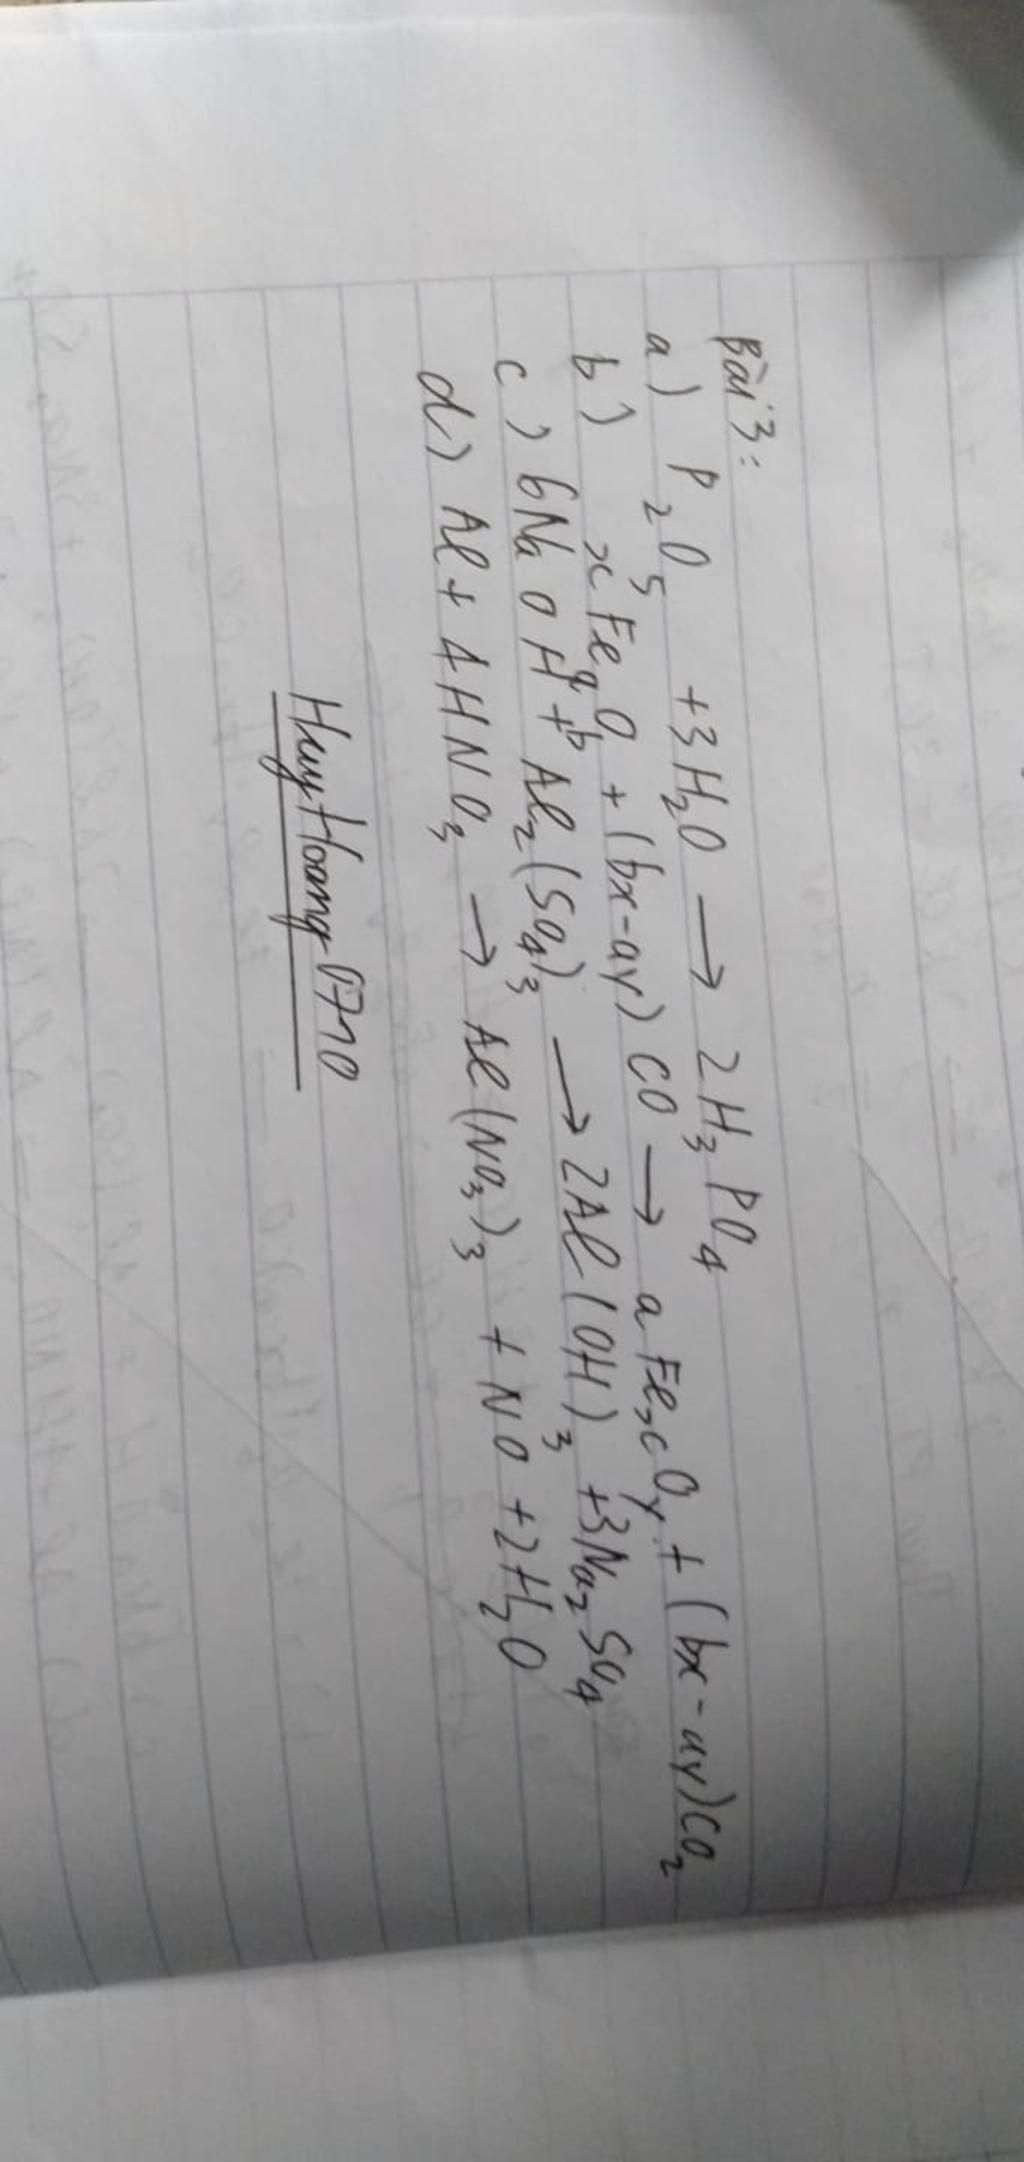 Bài 3:
a) P₂O₅ +3H₂O → 2H₃PO₄
b) xFeₐO_b + (bx-ay) CO → aFeₓO_y + (bx-ay)CO₂
c) 6NaOH + Al₂(SO₄)₃ → 2Al(OH)₃ +3Na₂SO₄
d) Al + 4HNO₃ → Al(NO₃)₃ + NO + 2H₂O
HuyHoang0710